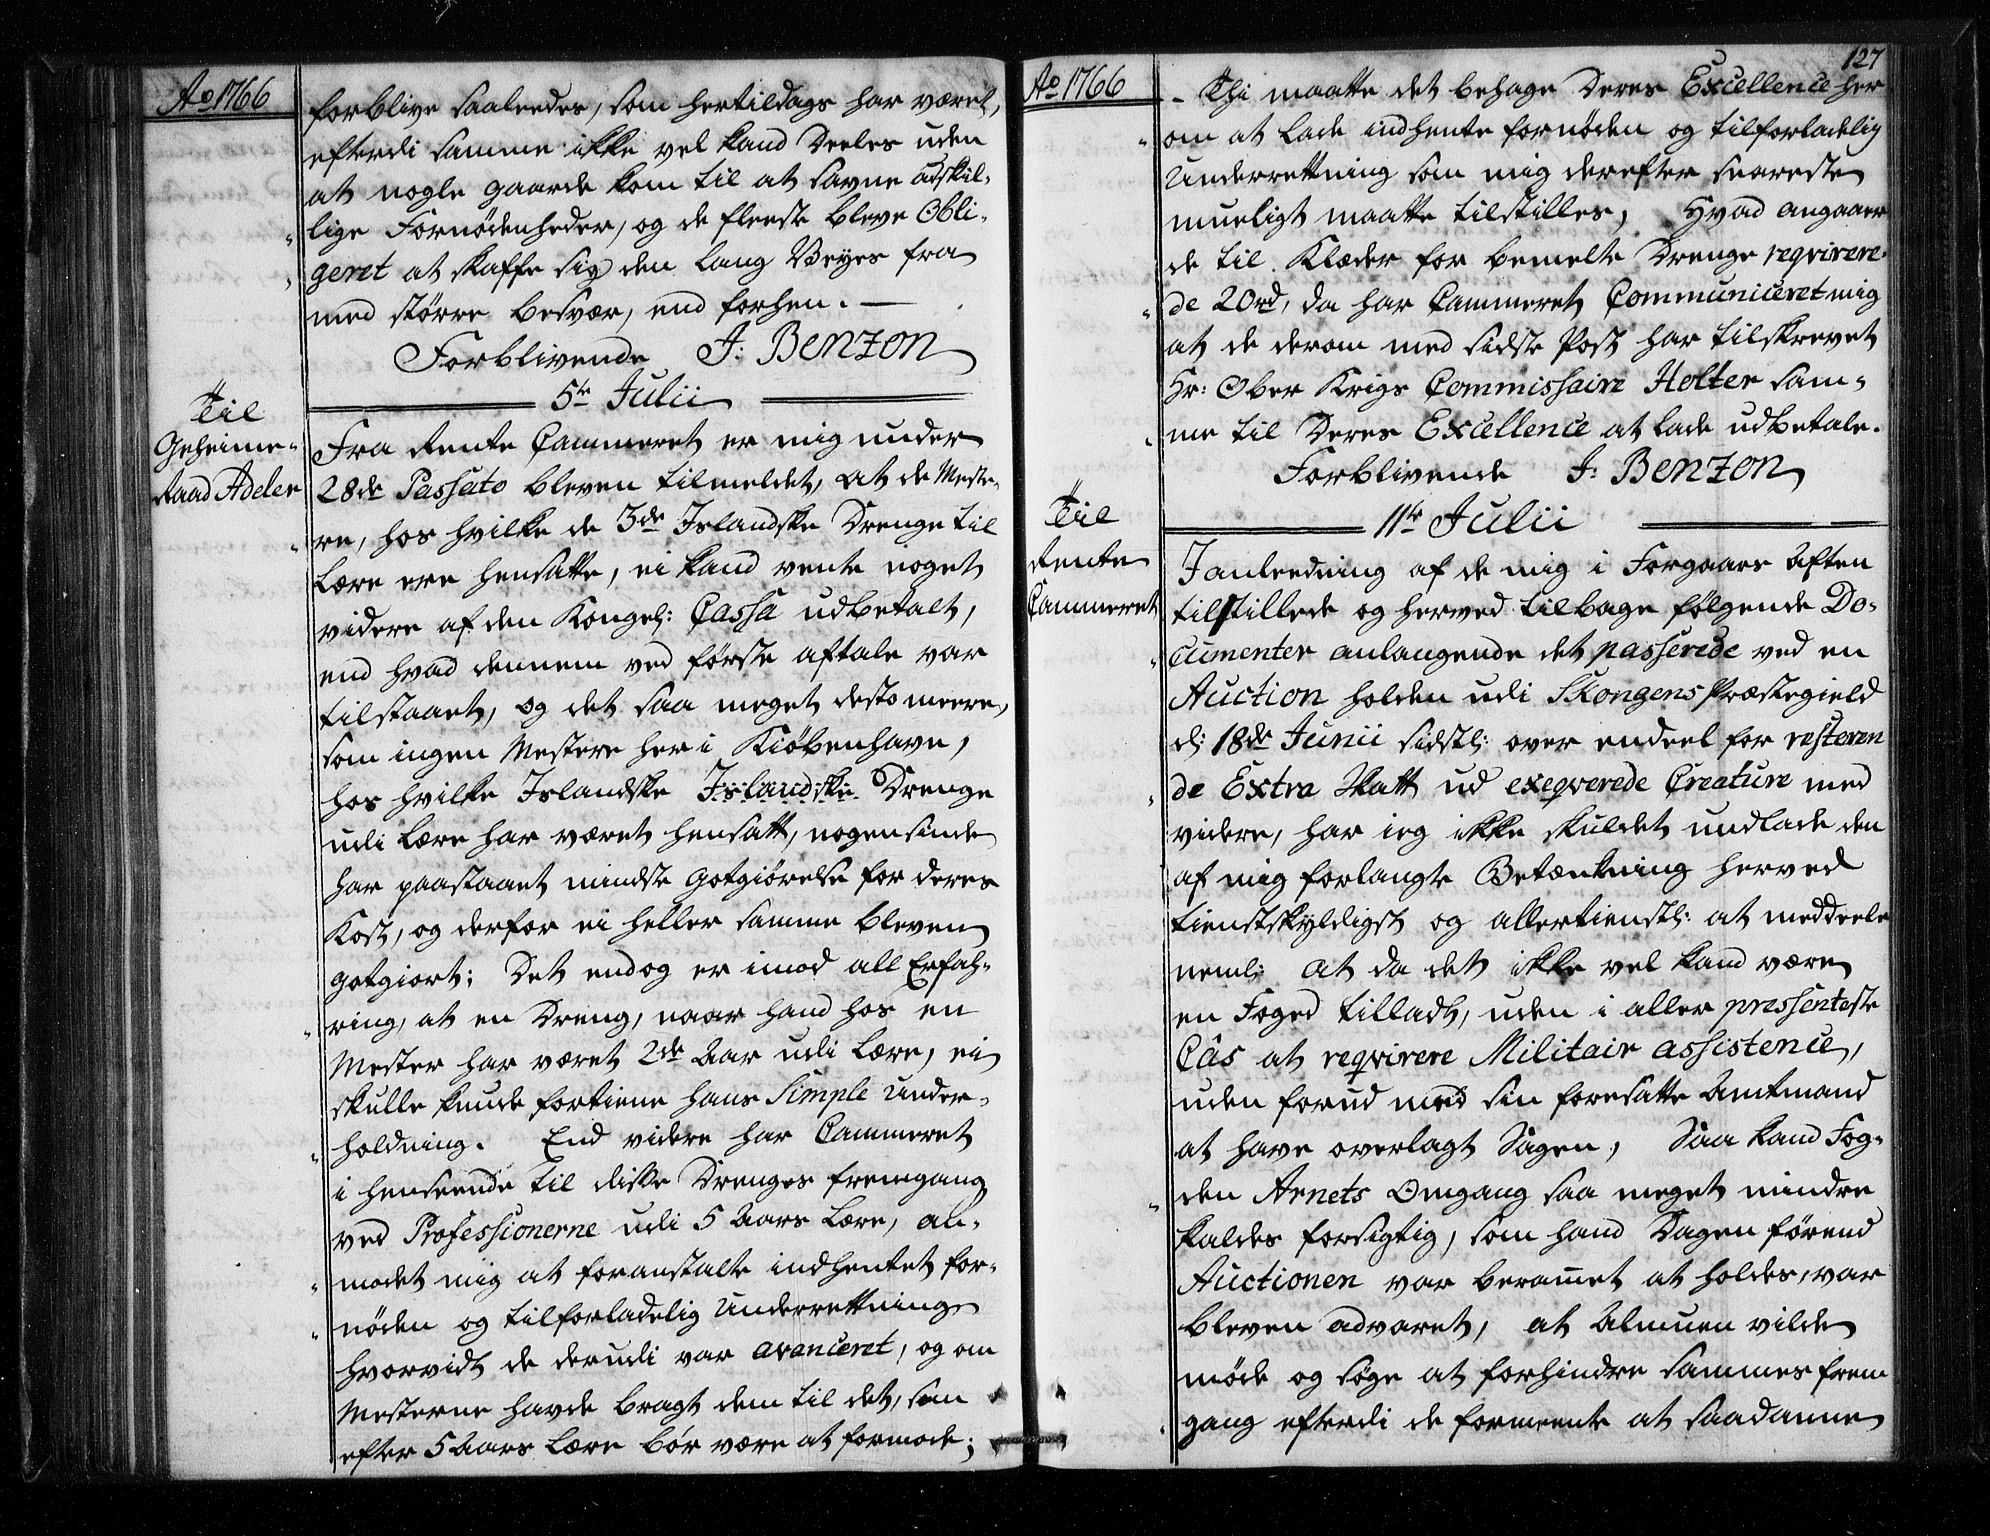 Ao 1766
forblive saaleedes, som hertildags har været,
efterdi samme ikke vel kand Deeles uden
at nogle gaarde kom til at savne adskil-
lige Fornødenheder, og de fleeste bleve Obli-
geret at skaffe sig den lang Veyes fra
med større besvær, end forhen. —
Forblivende J: Benzon
5te Julii
Til
Geheime-
Raad Adeler
Fra Rente Cammeret er mig under
28de Passato bleven tilmeldet, at de Meste-
re, hos hvilke de 3de Islandske Drenge til
Lære ere hensatte, ei kand vente noget
videre af den Kongel: Cassa udbetalt,
end hvad dennem ved første aftale var
tilstaaet, og det saa meget desto meere,
som ingen Mestere her i Kiøbenhavn,
hos hvilke Islandske Islandske Drenge
udi Lære har været hensatt, nogensinde
har paastaaet mindste Gotgiørelse for deres
Kost, og derfor ei heller samme bleven
gotgiort; Det endog er imod all Erfah-
ring, at en Dreng, naar hand hos en
Mester har været 2de Aar udi Lære, ei
skulle kunde fortiene hans Simple Under-
holdning. End videre har Cammeret
i henseende til disse Drenges fremgang
ved Professionerne udi 5 Aars Lære, an-
modet mig at foranstalte indhentet for-
nøden og tilforladelig Underrettning
hvorvidt de derudi var avanceret, og om
Mesterne havde bragt dem til det, som
efter 5 Aars Lære bør være at formode;
127
Ao 1766
- Thi maatte det behage Deres Excellence her
om at lade indhente fornøden og tilforladelig
Underrettning som mig derefter snareste
mueligt maatte tilstilles, Hvad angaaer
de til Klæder for bemelte Drenge reqvirere-
de 20rd, da har Cammeret Communiceret mig
at de derom med sidste Post har tilskrevet
Hr: Ober Krigs Commissaire Holter sam-
me til Deres Excellence at lade udbetale.
Forblivende J: Benzon
11te Julii
Til
Rente
Cammeret
I anleedning af de mig i Forgaars Aften
tilstillede og herved tilbage følgende Do-
cumenter anlangende det passerede ved en
Auction holden udi Skongens Præstegield
d: 18de Junii sidstl: over endeel for resteren
de Extra Skatt ud exeqverede Creature med
videre, har ieg ikke skuldet undlade den
af mig forlangte Betænkning herved
tienstskyldigst og allertienstl: at meddeele
neml: at da det ikke vel kand være
en Foged tilladt, uden i aller pressenteste
Câs at reqvirere Militair assistence,
uden forud med sin foresatte Amtmand
at have overlagt Sagen, Saa kand Fog-
den Arnets Omgang saa meget mindre
kaldes forsigtig, som hand Dagen førend
Auctionen var beramet at holdes, var
bleven advaret, at Almuen vilde
møde og søge at forhindre sammes frem
gang efterdi de formeente at saadanne